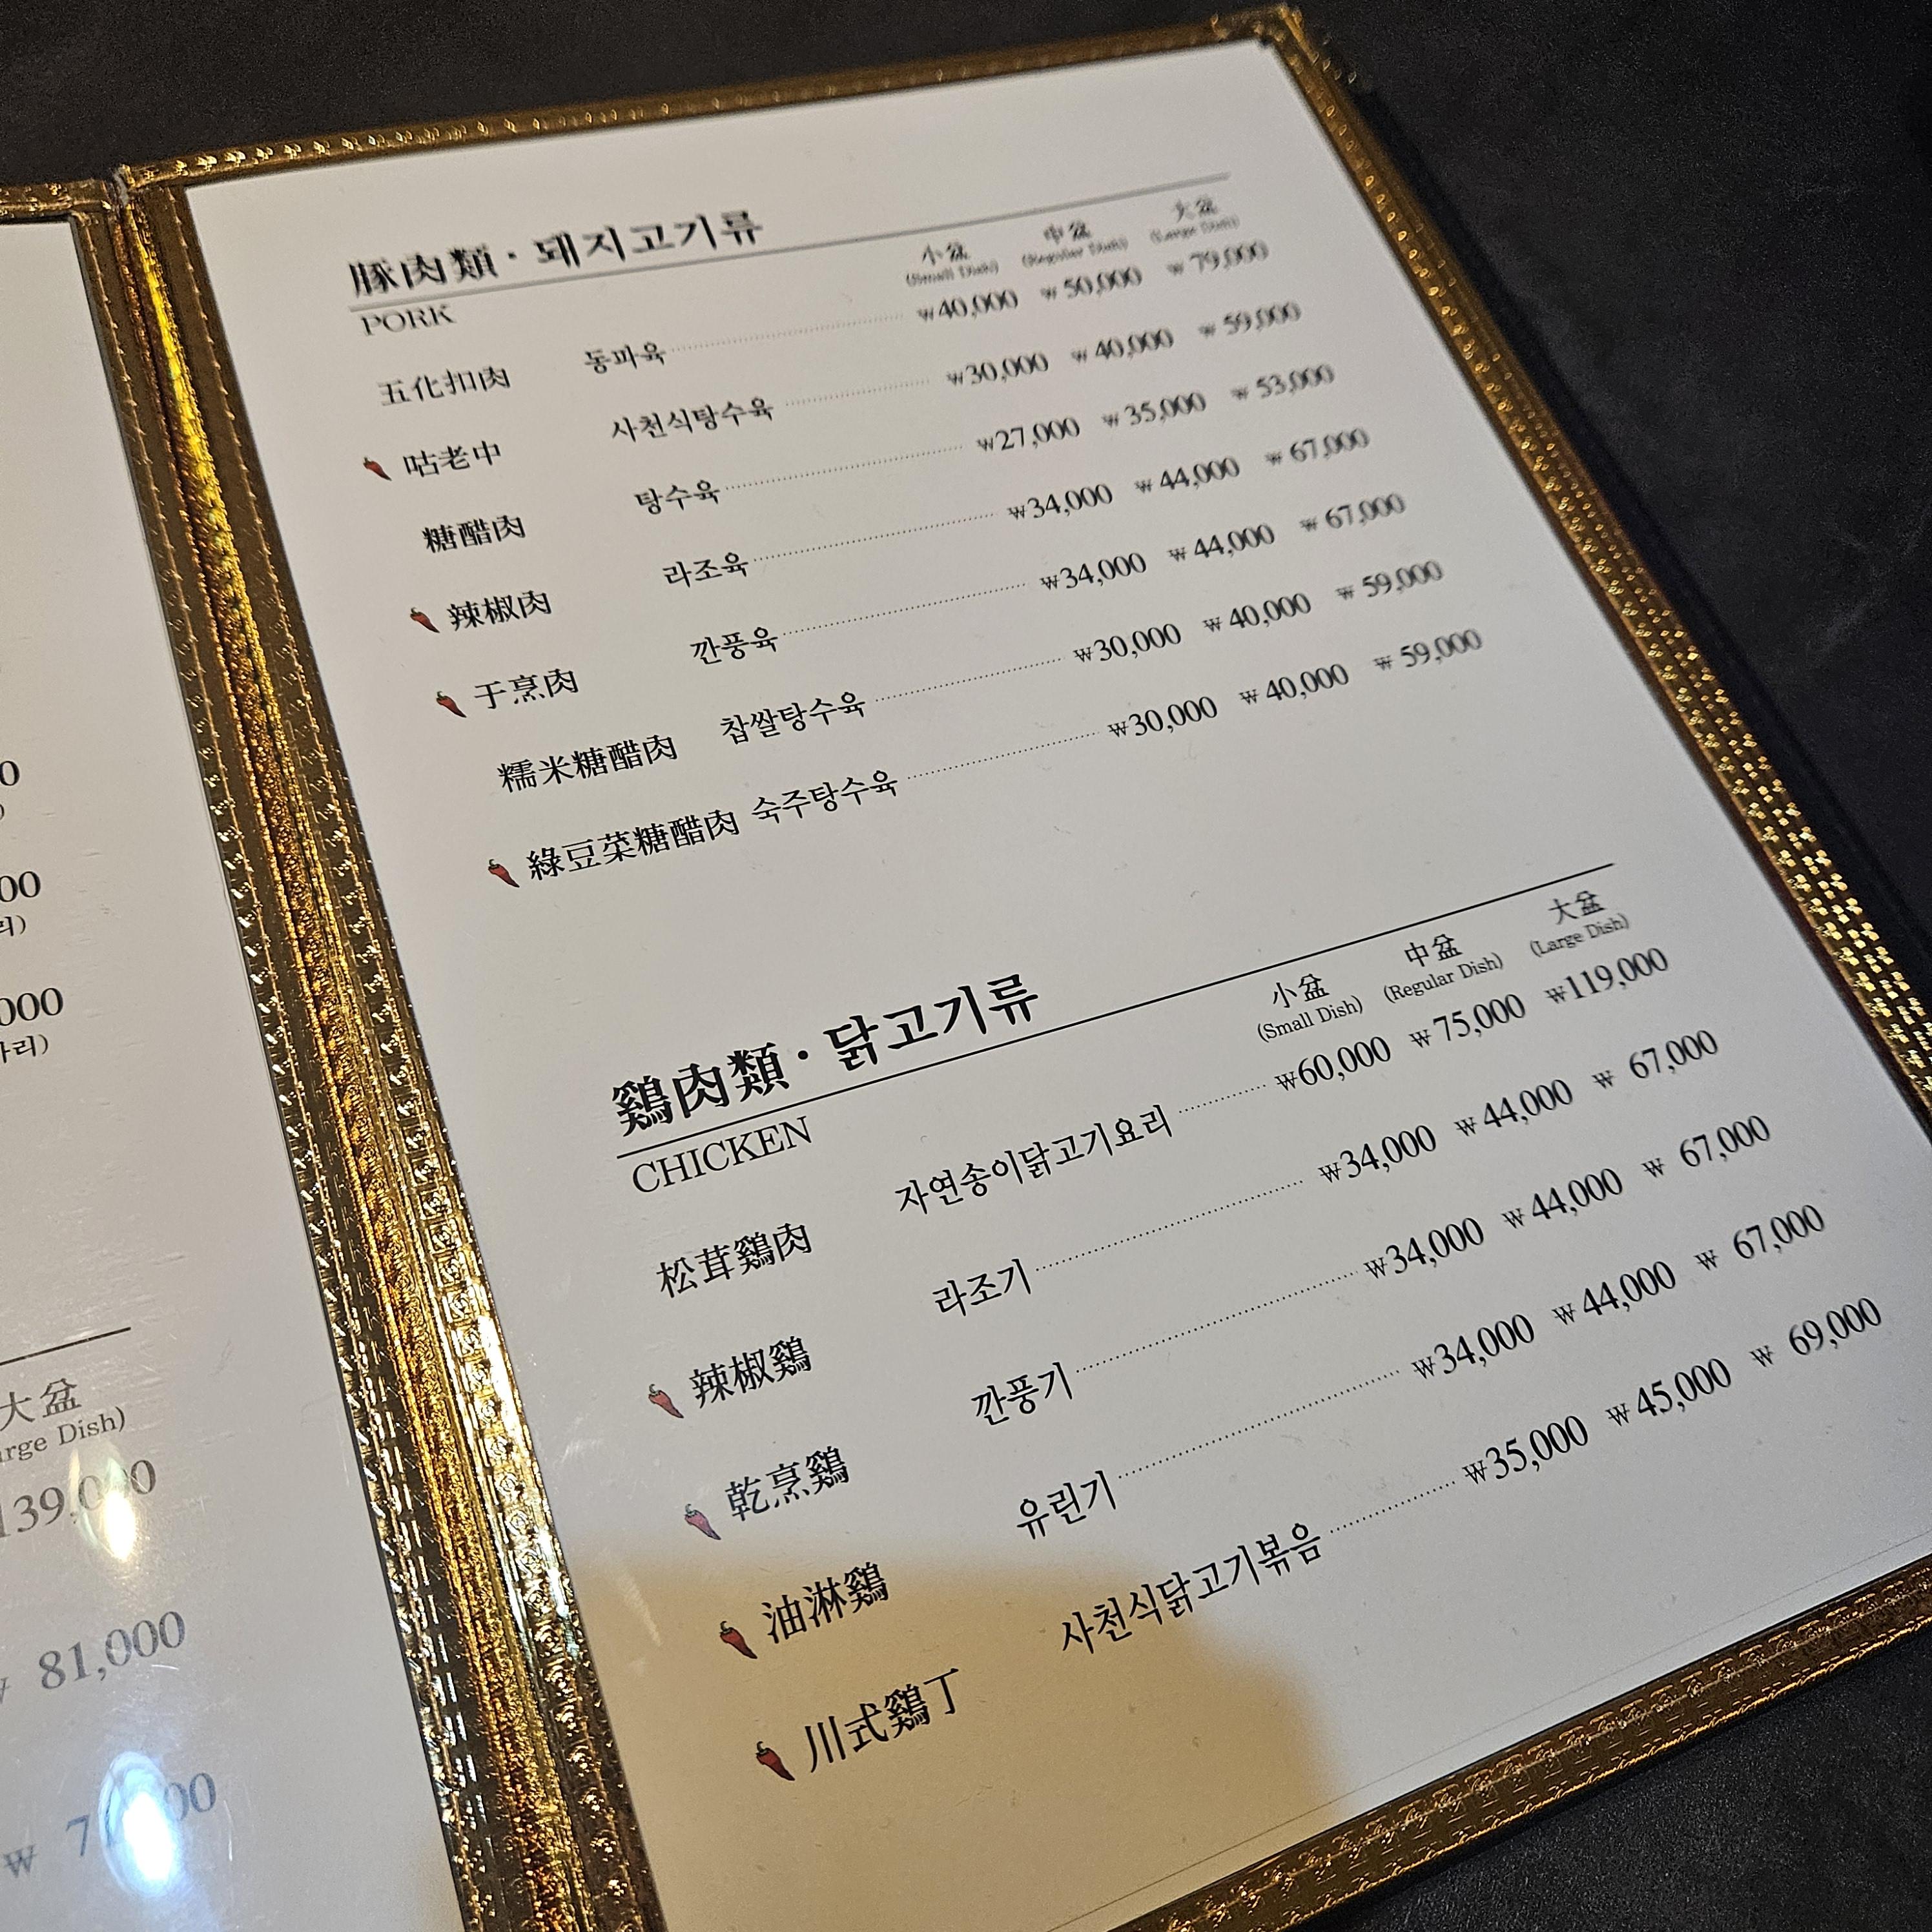 豚肉類·돼지고기류
PORK
小盆 中盆 大盆
(Small Dish) (Regular Dish) (Large Dish)
五化扣肉 동파육 ₩40,000 ₩50,000 ₩79,000
咕老中 사천식탕수육 ₩30,000 ₩40,000 ₩59,000
糖醋肉 탕수육 ₩27,000 ₩35,000 ₩53,000
辣椒肉 라조육 ₩34,000 ₩44,000 ₩67,000
于烹肉 깐풍육 ₩34,000 ₩44,000 ₩67,000
糯米糖醋肉 찹쌀탕수육 ₩30,000 ₩40,000 ₩59,000
綠豆菜糖醋肉 숙주탕수육 ₩30,000 ₩40,000 ₩59,000
鷄肉類·닭고기류
CHICKEN
小盆 中盆 大盆
(Small Dish) (Regular Dish) (Large Dish)
松茸鷄肉 자연송이닭고기요리 ₩60,000 ₩75,000 ₩119,000
辣椒鷄 라조기 ₩34,000 ₩44,000 ₩67,000
乾烹鷄 깐풍기 ₩34,000 ₩44,000 ₩67,000
油淋鷄 유린기 ₩34,000 ₩44,000 ₩67,000
川式鷄丁 사천식닭고기볶음 ₩35,000 ₩45,000 ₩69,000
大盆
Dish)
₩ 81,000